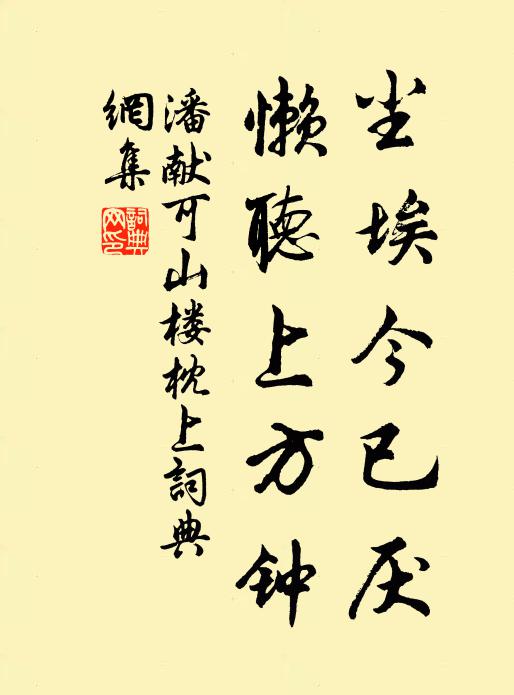 尘埃今已厌
懒聽上方钟
潘献可山楼枕上詞典
網集
詞典网印